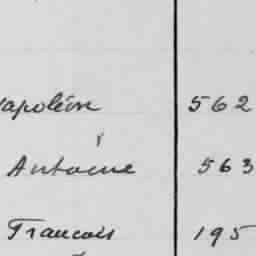 Napoléon 562
Antoine 563
Francois 195